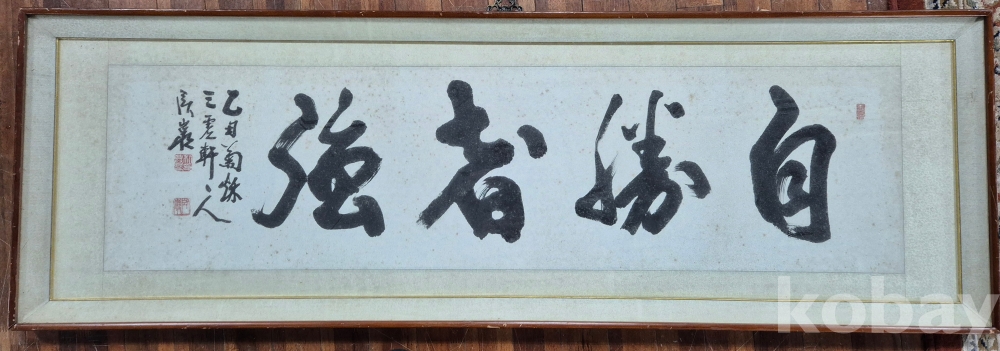 自勝者強
乙丑菊秋
三虛軒主人
kobay